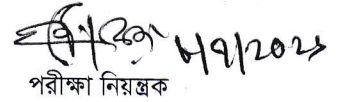 ৮/৭/২০২১
পরীক্ষা নিয়ন্ত্রক